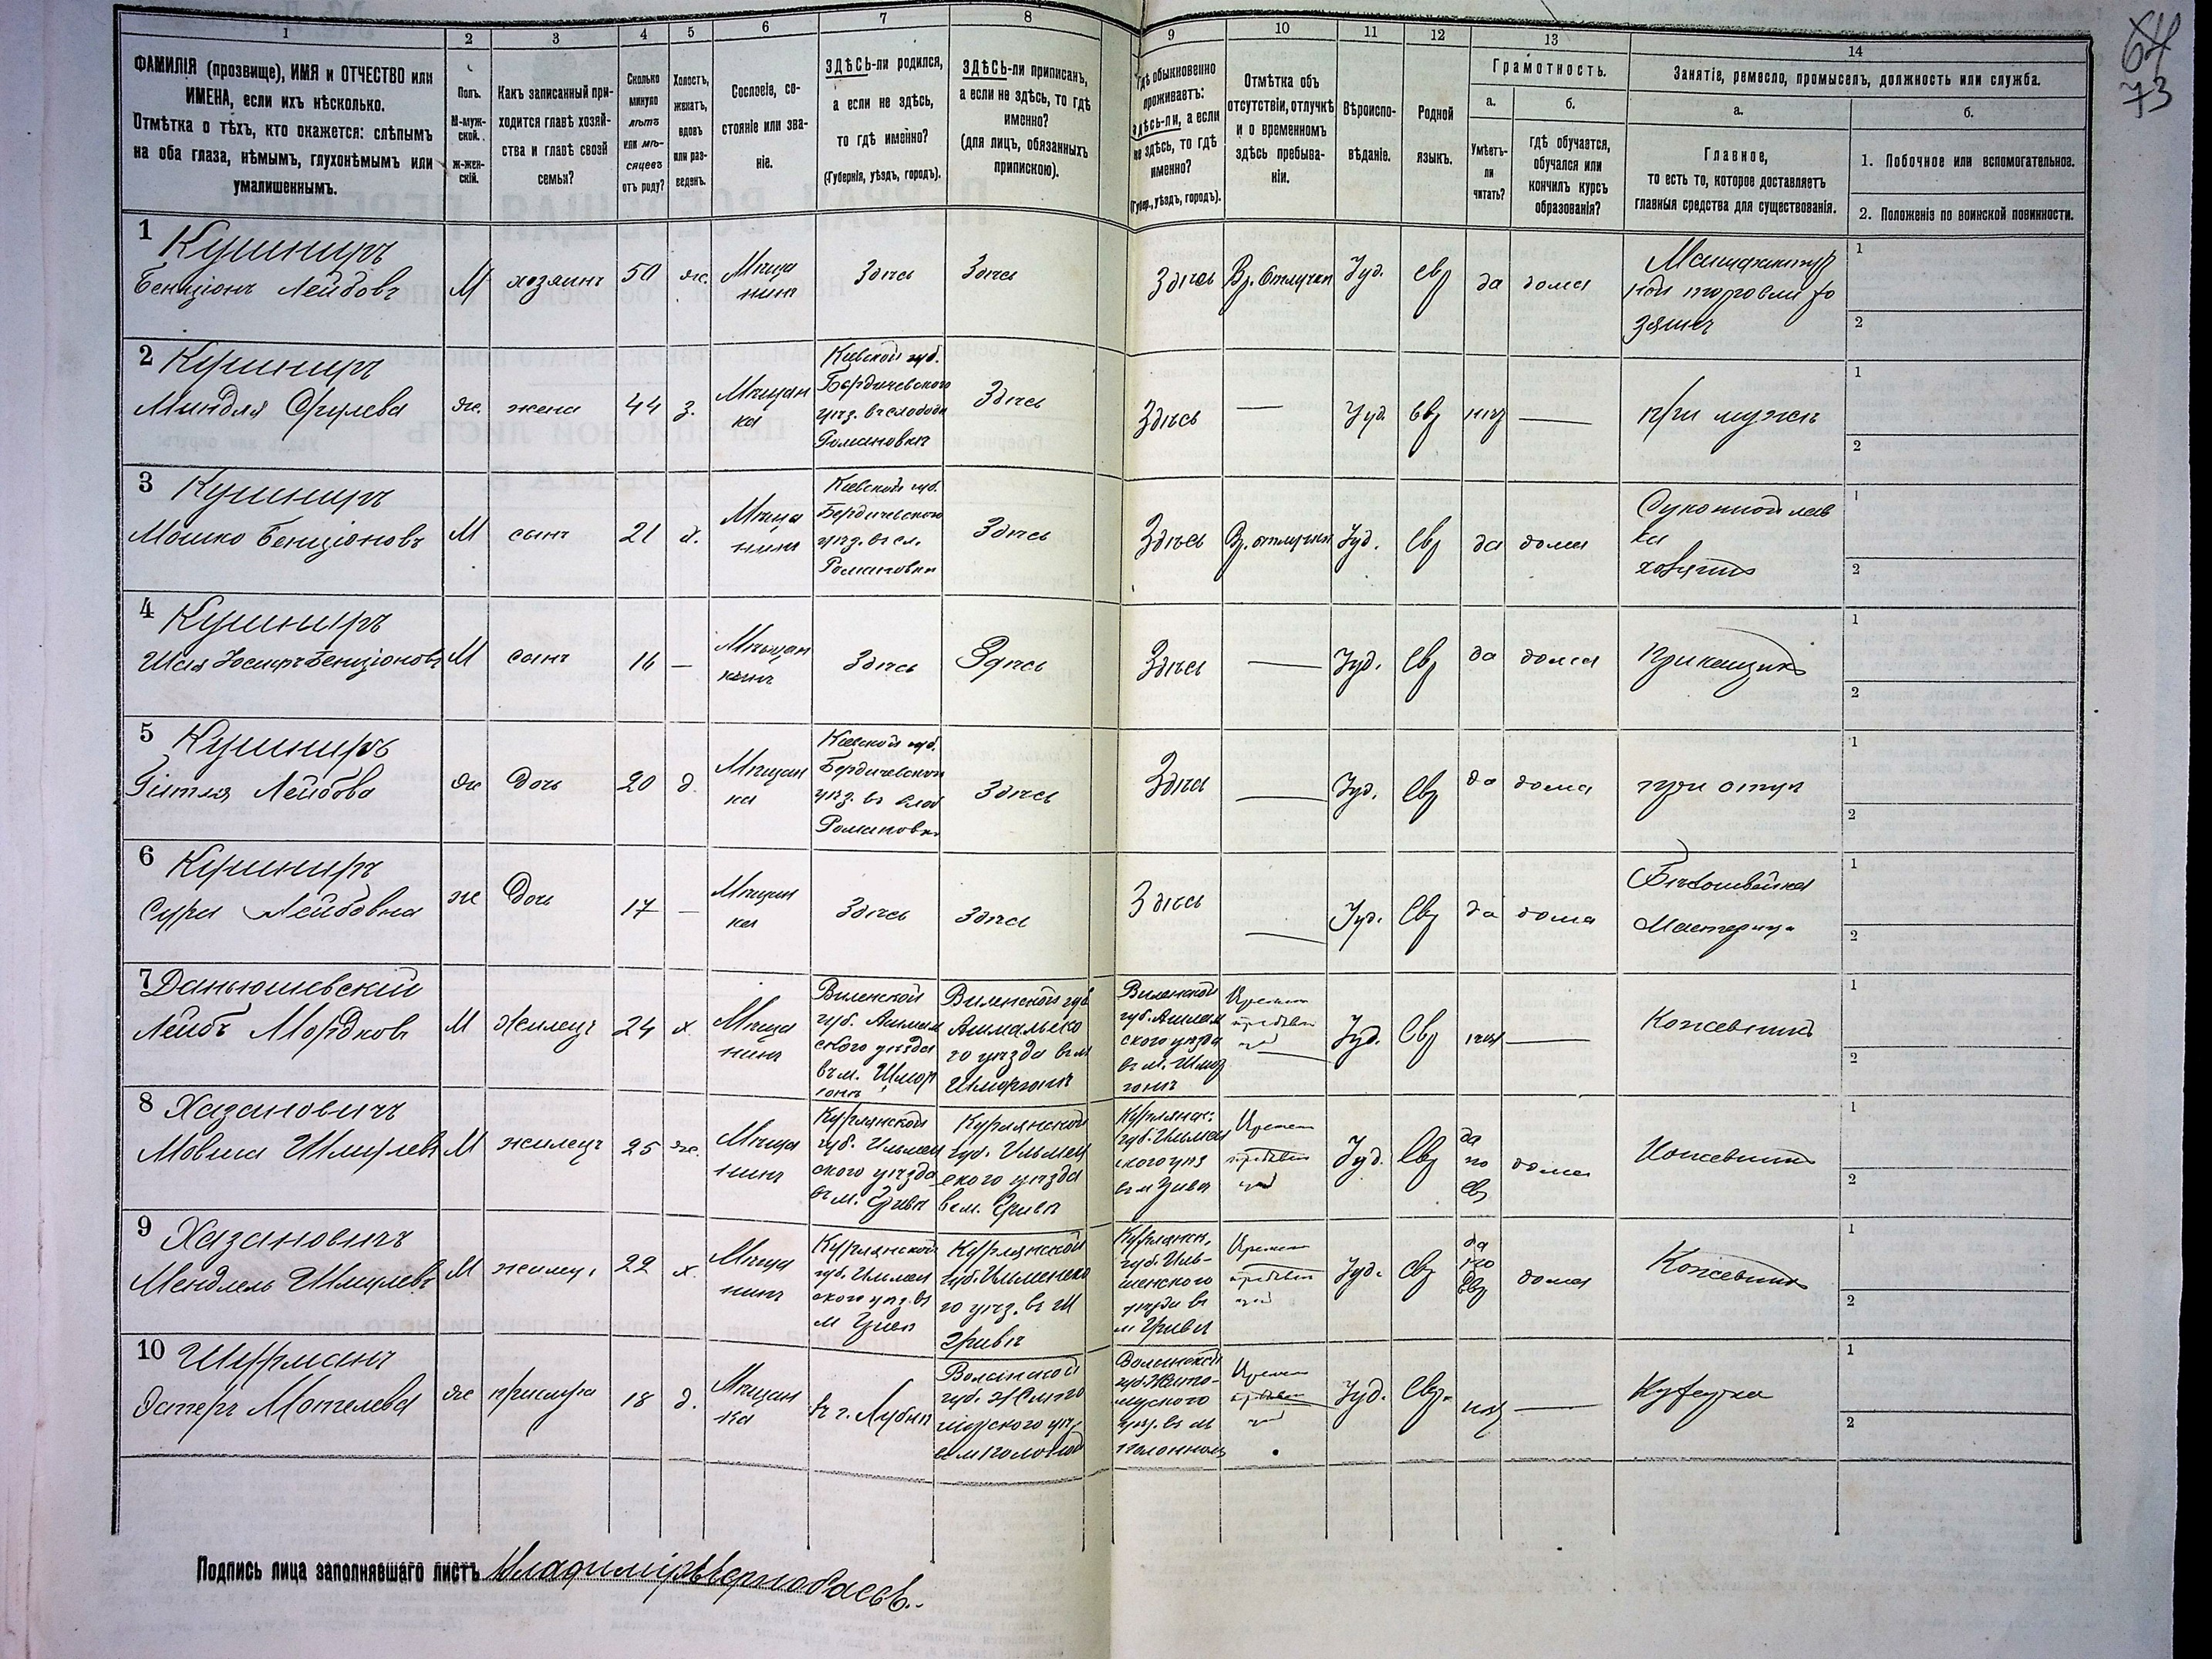 64
73
1
2
3
4
5
6
7
8
9
10
11
12
13
14
ФАМИЛІЯ (прозвище), ИМЯ и ОТЧЕСТВО или
ИМЕНА, если ихъ нѣсколько.
Отмѣтка о тѣхъ, кто окажется: слѣпымъ
на оба глаза, нѣмымъ, глухонѣмымъ или
умалишеннымъ.
Полъ.
М-муж-
ской.
ж-жен-
скій.
Какъ записанный при-
ходится главѣ хозяй-
ства и главѣ своей
семьи?
Сколько
минуло
лѣтъ
или мѣ-
сяцевъ
отъ роду?
Холостъ,
женатъ,
вдовъ
или раз-
веденъ.
Сословіе, со-
стояніе или зва-
ніе.
ЗДѢСЬ-ли родился,
а если не здѣсь,
то гдѣ именно?
(Губернія, уѣздъ, городъ).
ЗДѢСЬ-ли приписанъ,
а если не здѣсь, то гдѣ
именно?
(для лицъ, обязанныхъ
припискою).
Гдѣ обыкновенно
проживаетъ:
здѣсь-ли, а если
не здѣсь, то гдѣ
именно?
(Губер., уѣздъ, городъ).
Отмѣтка объ
отсутствіи, отлучкѣ
и о временномъ
здѣсь пребыва-
ніи.
Вѣроиспо-
вѣданіе.
Родной
языкъ.
Грамотность.
а.
Умѣетъ-
ли
читать?
б.
гдѣ обучается,
обучался или
кончилъ курсъ
образованія?
Занятіе, ремесло, промыселъ, должность или служба.
а.
Главное,
то есть то, которое доставляетъ
главныя средства для существованія.
б.
1. Побочное или вспомогательное.
2. Положеніе по воинской повинности.
1 Кушниръ
Бенціонъ Лейбовъ
М
хозяинъ
50
ж.
Мѣща
нинъ
Здѣсь
Здѣсь
Здѣсь
Вр. Отлучки
Іуд.
евр
да
дома
Мануфактур
ной торговли хо
зяинъ
1
2
2 Кушниръ
Миндля Срулева
ж.
жена
44
з.
Мѣщан
ка
Кіевской губ.
Бердичевскаго
уѣз. в слободѣ
Романовки
Здѣсь
Здѣсь
—
Іуд.
Евр
нѣт
—
при мужѣ
1
2
3 Кушниръ
Мошко Бенціоновъ
М
сынъ
21
х.
Мѣща
нинъ
Кіевской губ.
Бердичевскаго
уѣз. въ сл.
Романовки
Здѣсь
Здѣсь
Вр. отлучки
Іуд.
Евр
да
дома
Суконной лав
ки
хозяинъ
1
2
4 Кушниръ
Шая Іосифъ Бенціоновъ
М
сынъ
16
—
Здѣсь
Здѣсь
Здѣсь
—
Іуд.
Евр
да
дома
приказщикъ
1
2
5 Кушниръ
Гитля Лейбова
ж
Дочь
20
д.
Мѣщан
ка
Кіевской губ.
Бердичевского
уѣз. въ слоб
Романовки
Здѣсь
Здѣсь
—
Іуд.
Евр
да
дома
при отцѣ
1
2
6 Кушниръ
Сура Лейбовна
ж
Дочь
17
—
Мѣщан
ка
Здѣсь
Здѣсь
Здѣсь
—
Іуд.
Евр
да
дома
Бѣлошвейка
Мастерица
1
2
7 Даньюшевскій
Лейбъ Мордковъ
М
Жилецъ
24
х.
Мѣща
нинъ
Виленской
губ. Ашмян
ского уѣзда
въ м. Шмор
гонъ
Виленской губ
Ашмянско
го уѣзда въ м
Шморгонъ
Виленской
губ. Ашмян
ского уѣзда
въ м. Шмор
гонъ
Іуд.
Евр
—
Кожевникъ
1
2
8 Хазановичъ
Мовша Шмулевъ
М
жилецъ
25
ж.
Мѣща
нинъ
Курлянской
губ. Ильмен
ского уѣзда
въ м. Грива
Курлянской
губ. Ильмен
ского уѣзда
в м. Грива
Іуд.
Евр
да
по
евр
дома
Кожевникъ
1
2
9 Хазановичъ
Мендель Шмулевъ
М
жилецъ
22
х.
Мѣща
нинъ
Курлянской
губ. Ильмен
ского уѣз. въ
Курлянской
губ. Ильменско
го уѣз. въ м
Гривъ
Курлянск.
губ. Иль-
менского
Іуд.
Евр
да
по
Евр
дома
Кожевникъ
1
2
10 Шурманъ
Эстеръ Мотелева
ж
прислуга
18
д.
Мѣщан
ка
в г. Лубны
Волынской
губ. Жито
мірского уѣз
Волынской
губ. Жито-
мірского
Іуд.
Евр.
—
Кухарка
1
2
Подпись лица заполнявшаго листъ